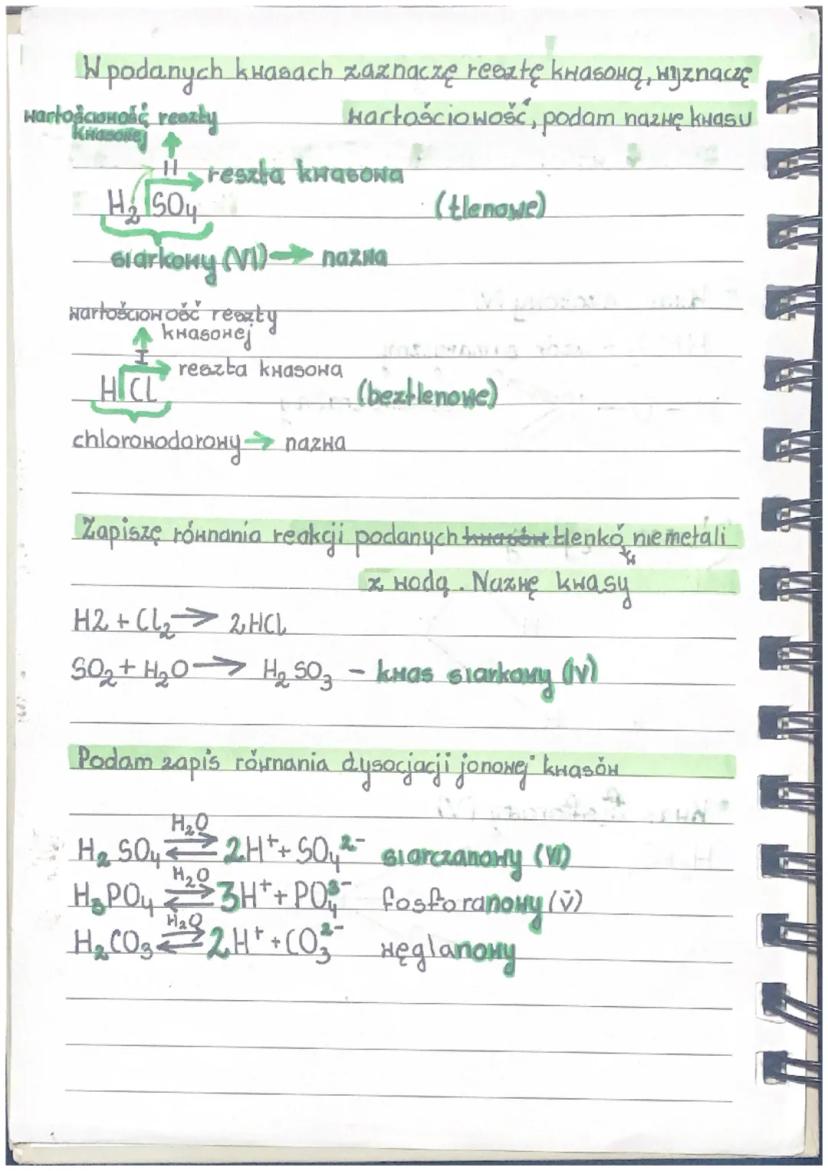 W podanych kwasach zaznaczę resztę kwasową, wyznaczę
wartościowość, podam nazwę kwasu
wartościowość reszty
kwasowej
II
reszta kwasowa
H₂SO₄ (tlenowe)
siarkowy (VI) → nazwa
wartościowość reszty
kwasowej
I
reszta kwasowa
HCl (beztlenowe)
chlorowodorowy → nazwa
Zapiszę równania reakcji podanych kwasów tlenkó niemetali
w
z wodą. Nazwę kwasy
H2 + Cl₂ → 2HCl
SO₂ + H₂O → H₂SO₃ – kwas siarkowy (IV)
Podam zapis równania dysocjacji jonowej kwasów
H₂O
H₂SO₄ ⇄ 2H⁺ + SO₄²⁻ siarczanowy (VI)
H₂O
H₃PO₄ ⇄ 3H⁺ + PO₄³⁻ fosforanowy (v)
H₂O
H₂CO₃ ⇄ 2H⁺ + CO₃²⁻ węglanowy